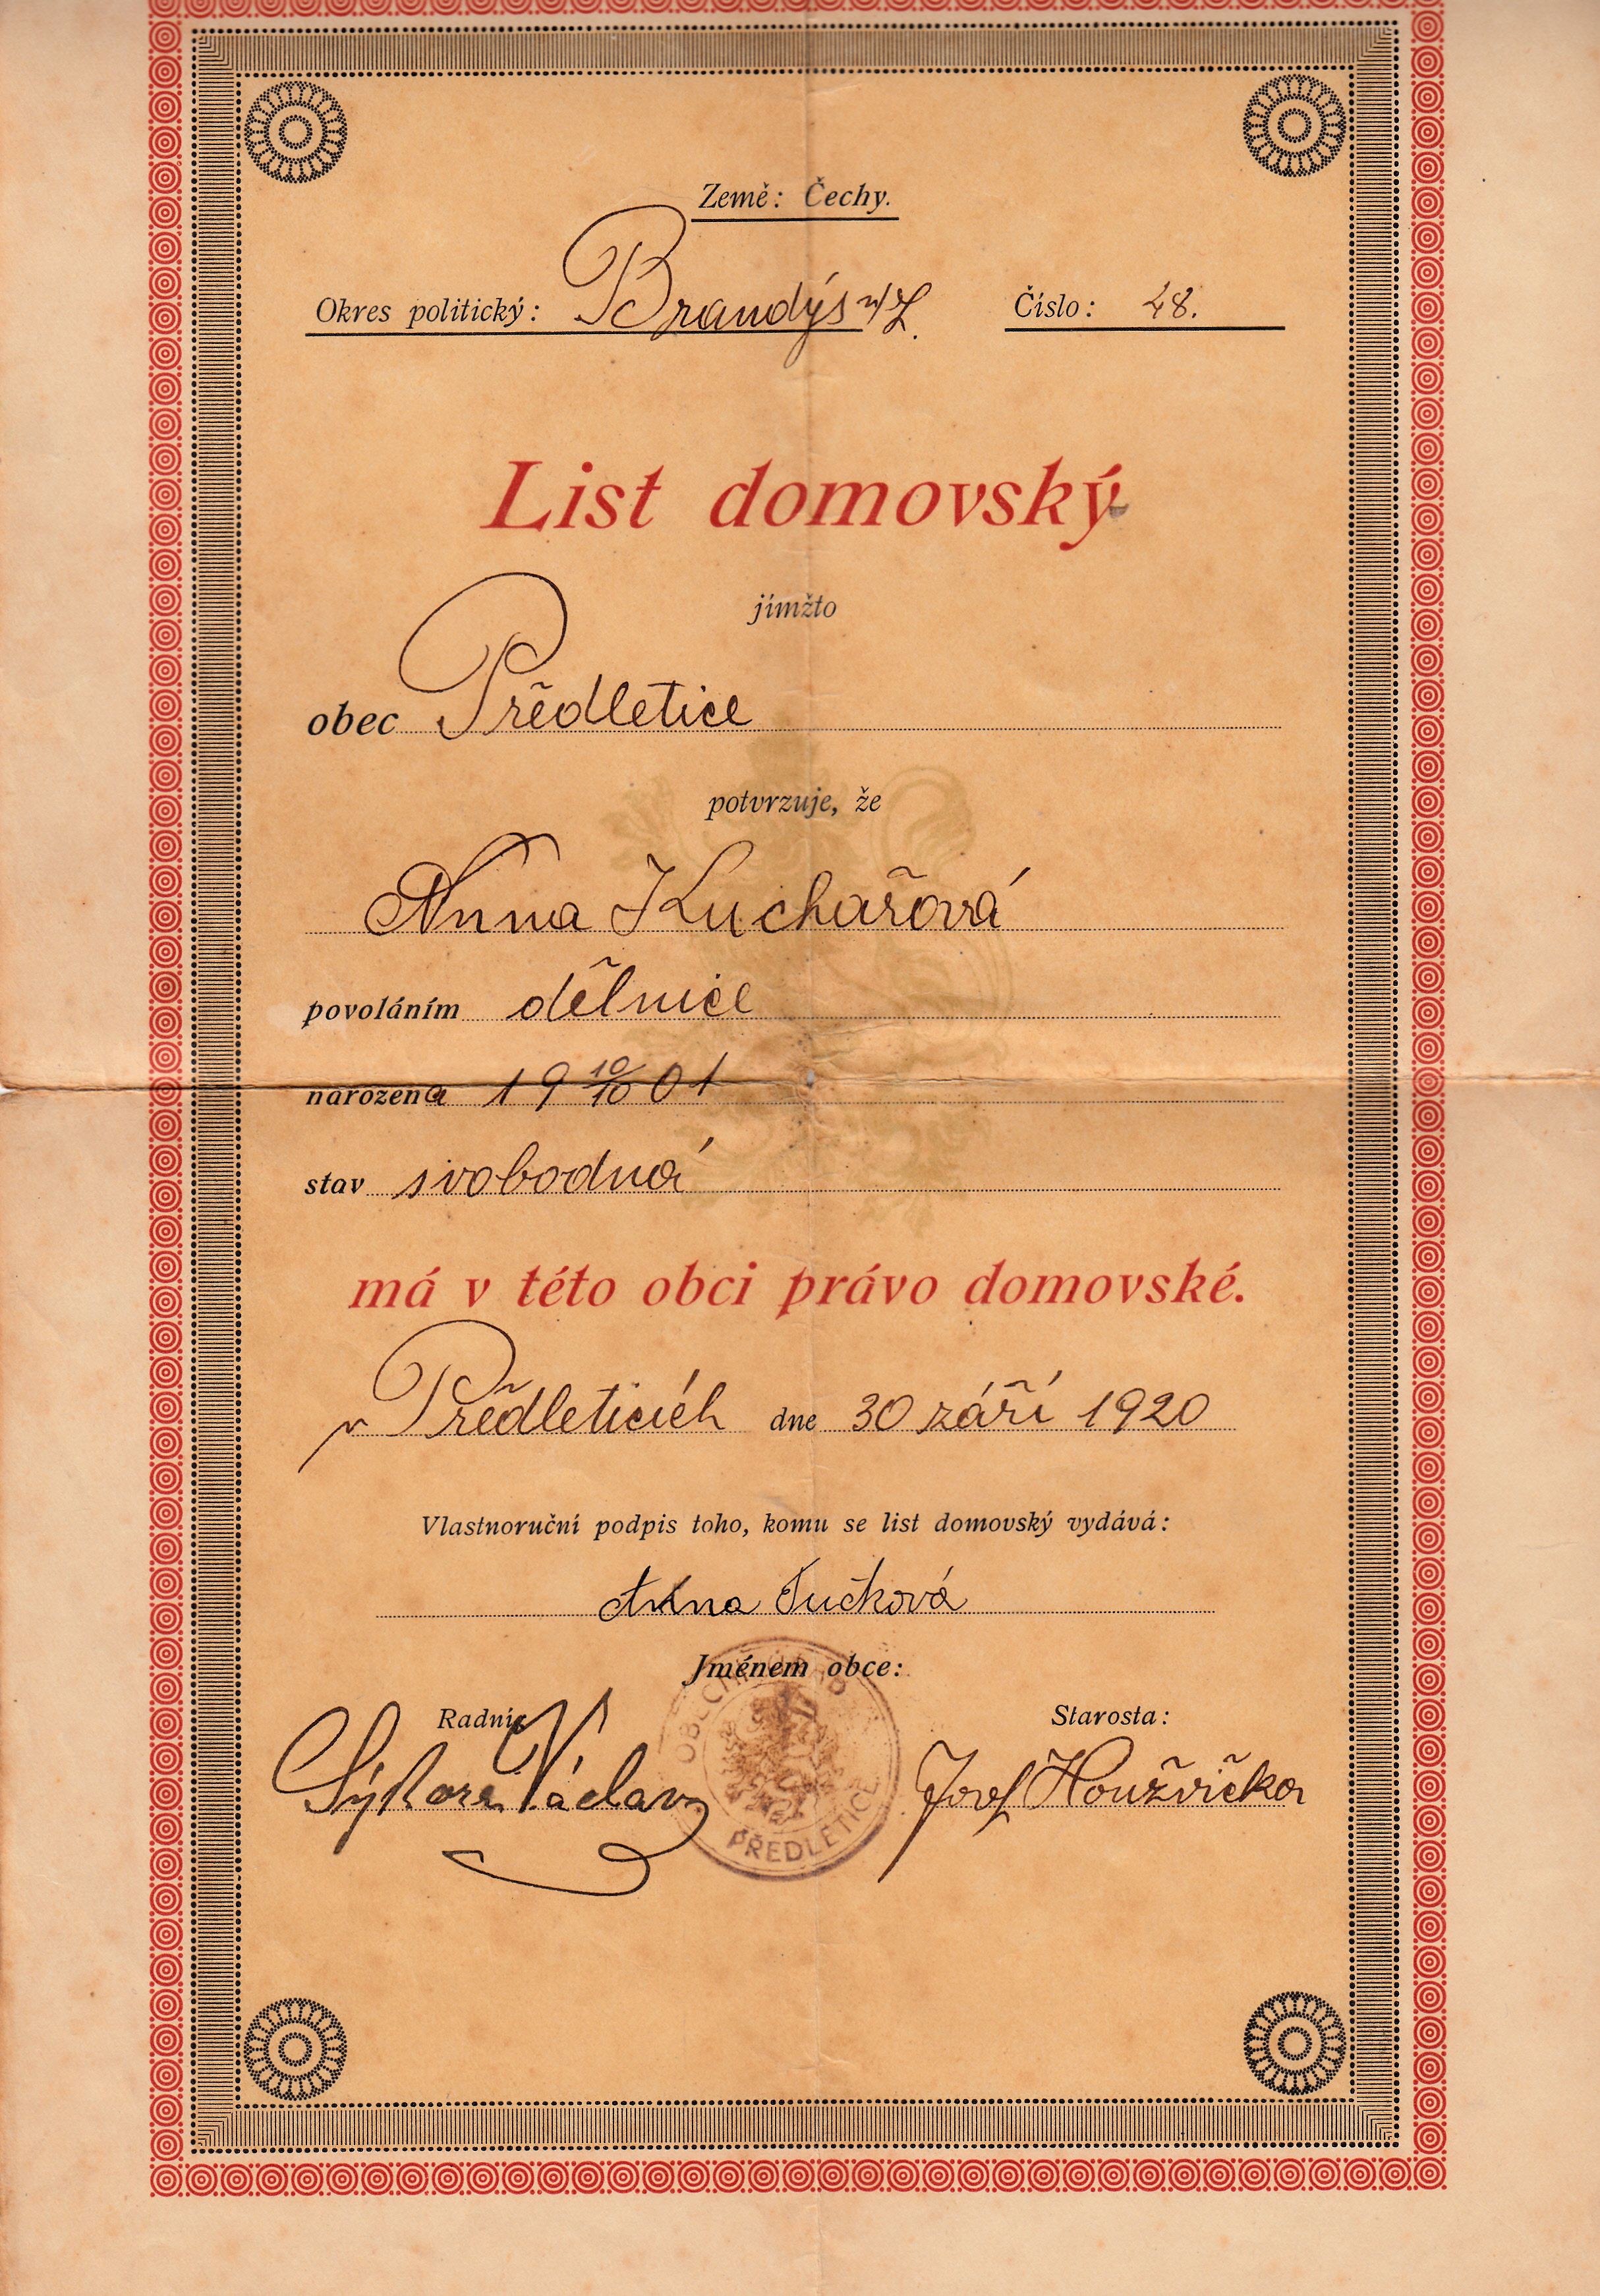 Země: Čechy.
Okres politický: Brandýs n/L. Číslo: 48.
List domovský
jímžto
obec Předletice
potvrzuje, že
Anna Kuchařová
povoláním dělnice
narozena 19 10/10 01
stav svobodná
má v této obci právo domovské.
v Předleticích dne 30 září 1920
Vlastnoruční podpis toho, komu se list domovský vydává:
Anna Tučková
Jménem obce:
Radní: Starosta:
Sýkora Václav Josef Houžvička
OBECNÍ ÚŘAD
PŘEDLETICE